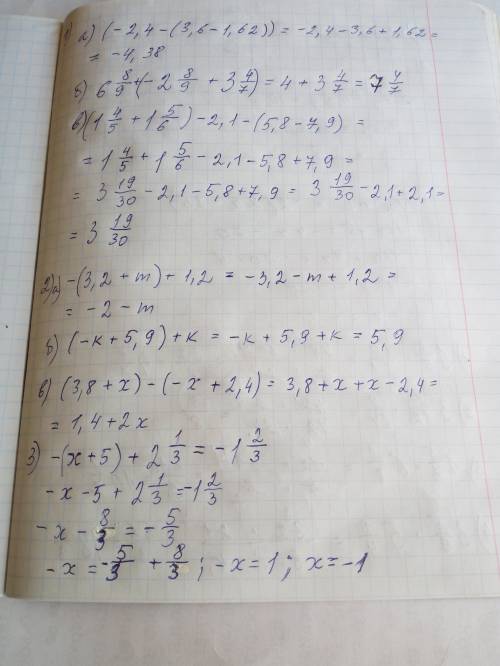 1) а) (-2,4-(3,6-1,62)) = -2,4-3,6+1,62=
= -4,38
б) 6 8/9 + (-2 8/9 + 3 4/7) = 4 + 3 4/7 = 7 4/7
в) (1 4/5 + 1 5/6) - 2,1 - (5,8 - 7,9) =
= 1 4/5 + 1 5/6 - 2,1 - 5,8 + 7,9 =
= 3 19/30 - 2,1 - 5,8 + 7,9 = 3 19/30 - 2,1 + 2,1 =
= 3 19/30
2) а) -(3,2 + m) + 1,2 = -3,2 - m + 1,2 =
= -2 - m
б) (-к + 5,9) + к = -к + 5,9 + к = 5,9
в) (3,8 + x) - (-x + 2,4) = 3,8 + x + x - 2,4 =
= 1,4 + 2x
3) -(x+5) + 2 1/3 = -1 2/3
-x - 5 + 2 1/3 = -1 2/3
-x - 8/3 = -5/3
-x = -5/3 + 8/3 ; -x = 1 ; x = -1